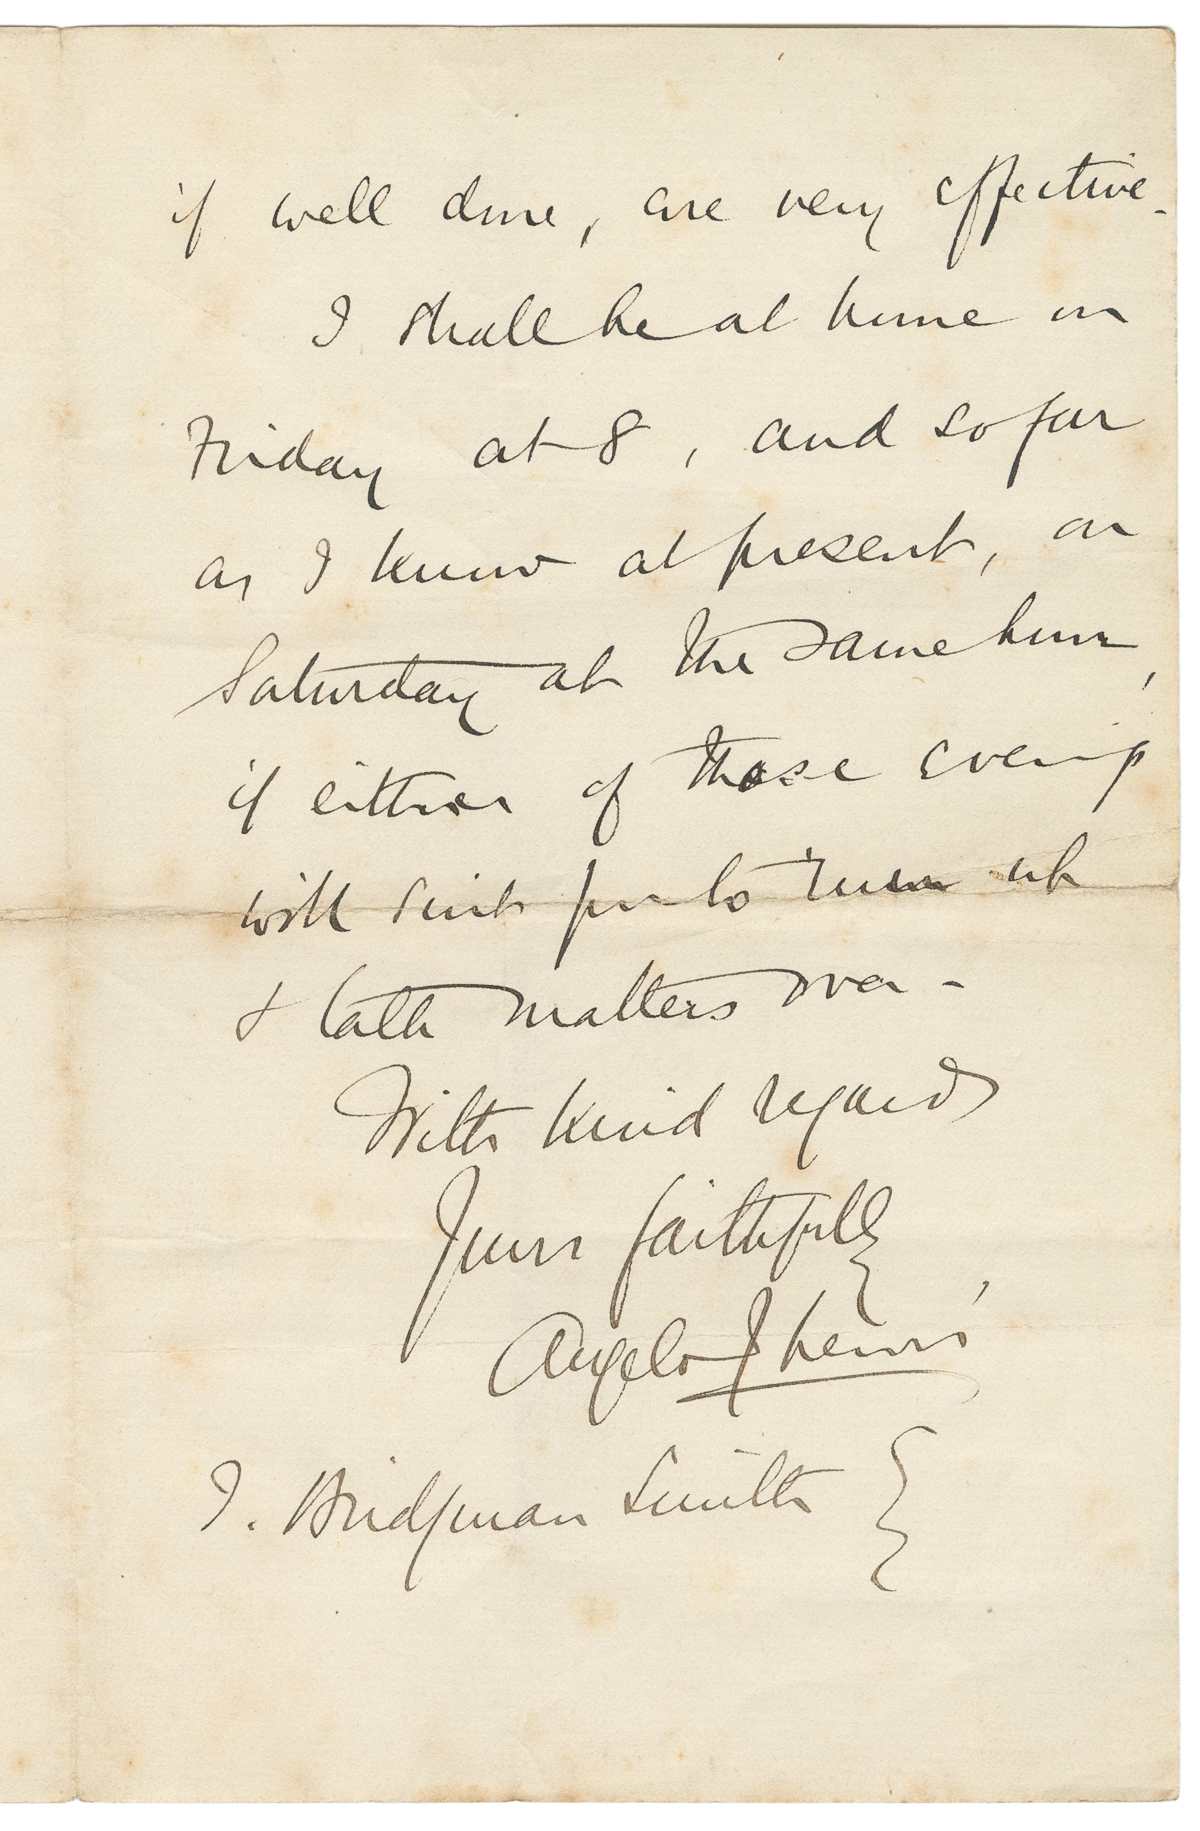 if well done, are very effective.
I shall be at home on
Friday at 8, and so far
as I know at present, on
Saturday at the same hour,
if either of those evenings
will suit you to run up
& talk matters over -
With kind regards
Yours faithfully
Angelo J Lewis
J. Bridgman Smith